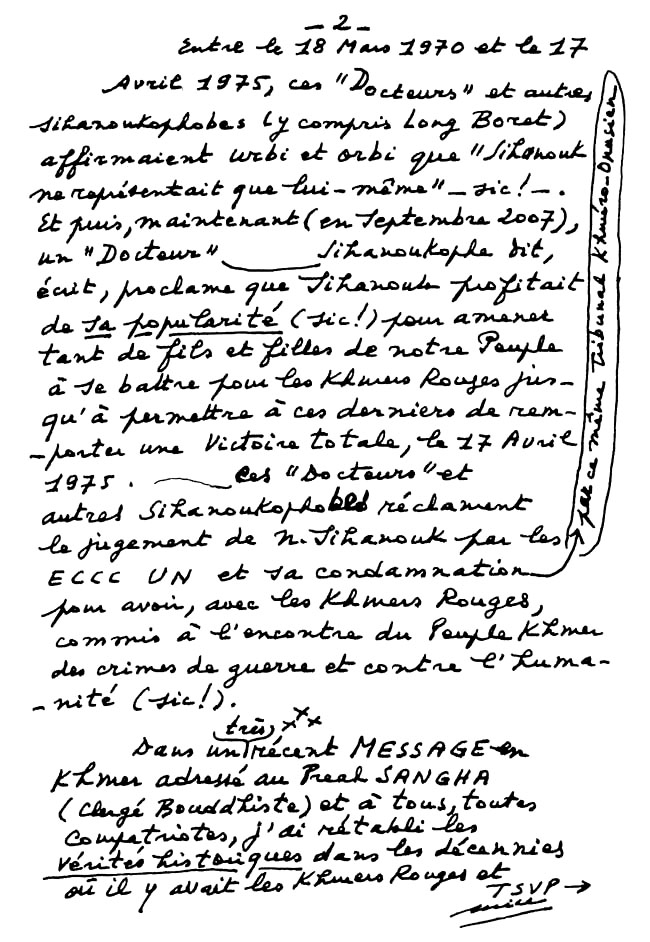 - 2 -
Entre le 18 Mars 1970 et le 17
Avril 1975, ces "Docteurs" et autres
Sihanoukophobes (y compris Long Boret)
affirmaient urbi et orbi que "Sihanouk
ne représentait que lui-même" - sic! - .
Et puis, maintenant (en Septembre 2007),
un "Docteur" Sihanoukophe dit,
écrit, proclame que Sihanouk profitait
de sa popularité (sic!) pour amener
tant de fils et filles de notre Peuple
à se battre pour les Khmers Rouges jus-
qu'à permettre à ces derniers de rem-
-porter une Victoire totale, le 17 Avril
1975. Ces "Docteurs" et
autres Sihanoukophobes réclament
le jugement de N. Sihanouk par les
ECCC UN et sa condamnation
par ce même Tribunal Khméro-Onusien
pour avoir, avec les Khmers Rouges,
commis à l'encontre du Peuple Khmer
des crimes de guerre et contre l'huma-
-nité (sic!).
xxx
Dans un très, récent MESSAGE en
Khmer adressé au Preah SANGHA
(Clergé Bouddhiste) et à tous, toutes
Compatriotes, j'ai rétabli les
vérités historiques dans les décennies
où il y avait les Khmers Rouges et
TSVP →